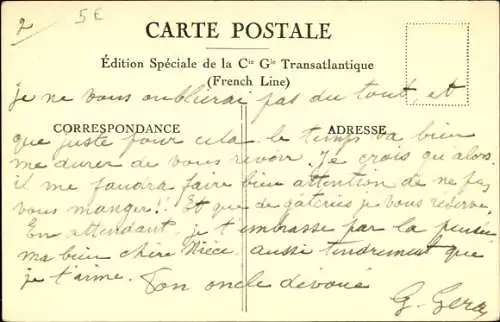 2 5E
CARTE POSTALE
Édition Spéciale de la Cie Gle Transatlantique
(French Line)
je ne vous oublierai pas du tout, et
CORRESPONDANCE ADRESSE
que juste pour cela le temps va bien
me durer de vous revoir. Je crois qu'alors
il me faudra faire bien attention de ne pas
vous manger!! Et que de gateries je vous réserve
En attendant, je t'embrasse par la pensée
ma bien chère Nièce aussi tendrement que
je t'aime. Ton oncle dévoué
G.